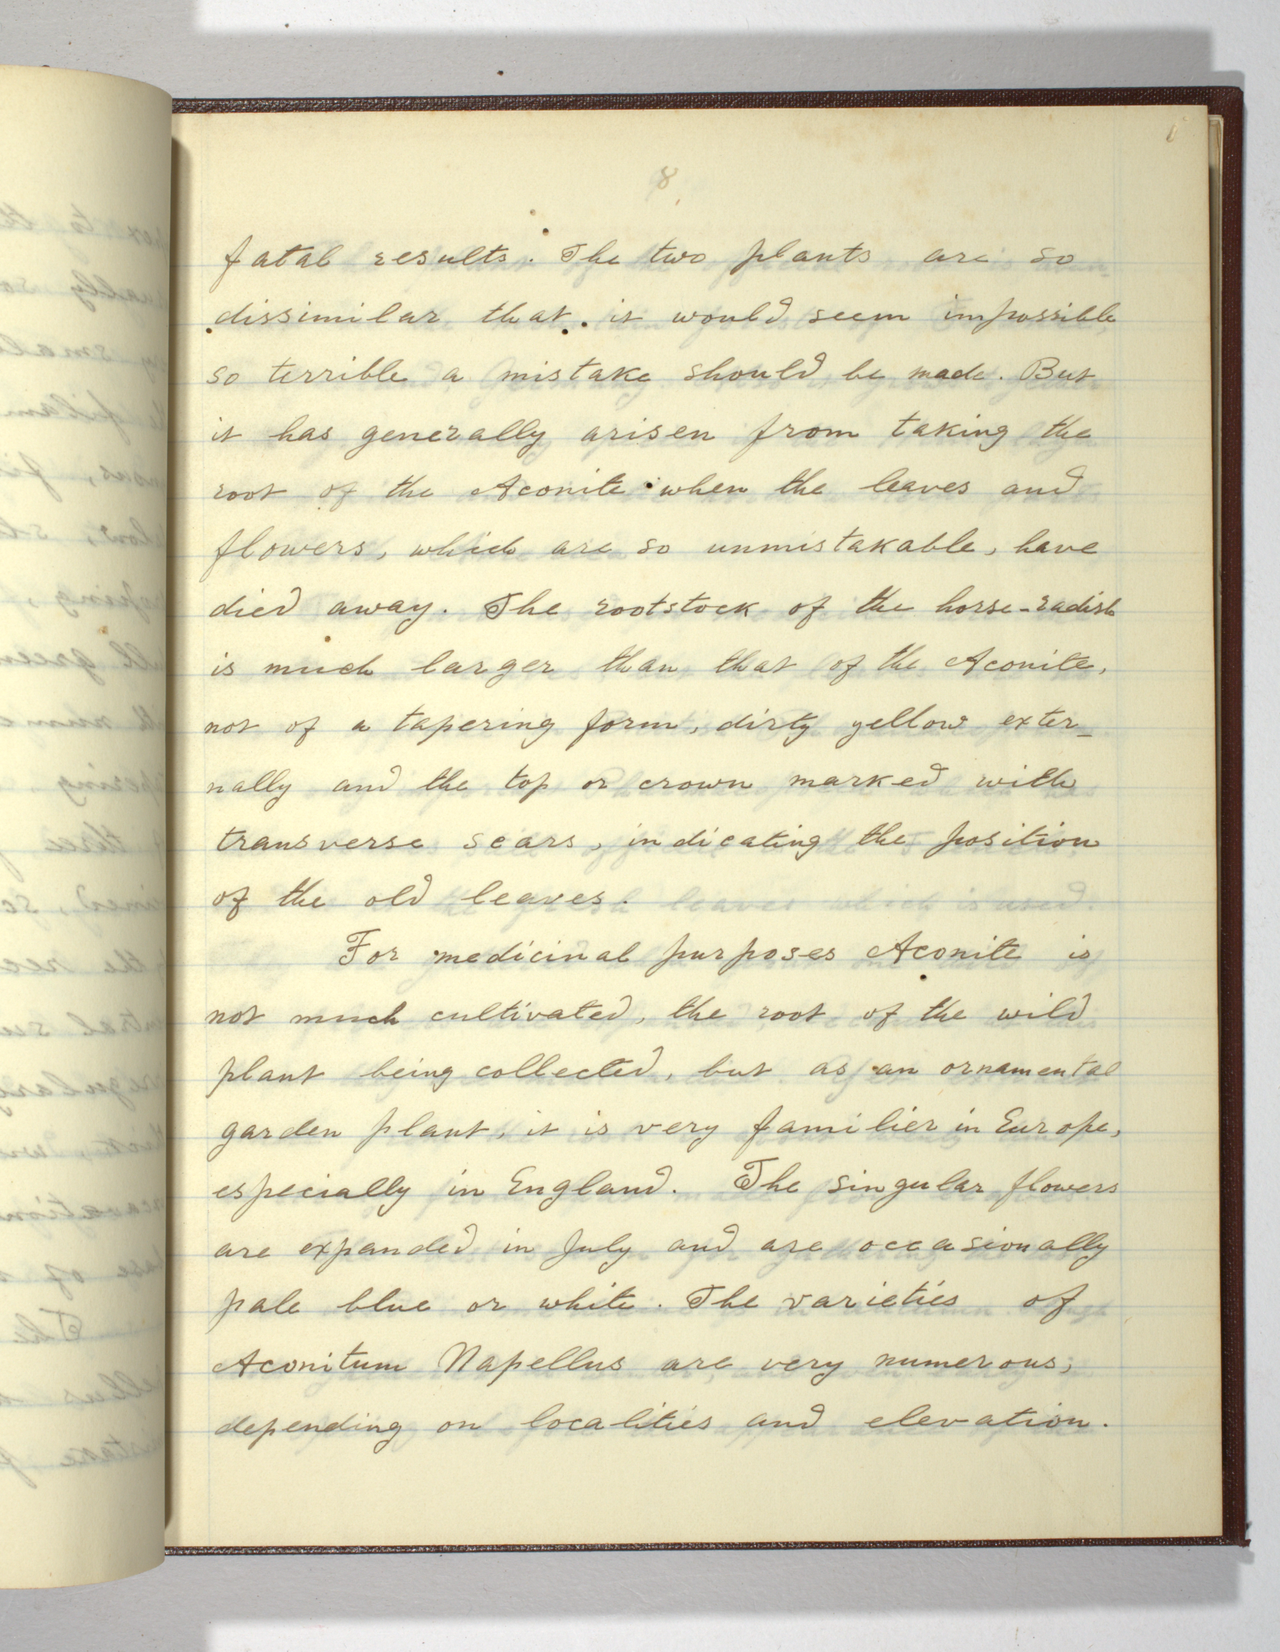 8
fatal results. The two plants are so
dissimilar that it would seem impossible
so terrible a mistake should be made. But
it has generally arisen from taking the
root of the Aconite when the leaves and
flowers, which are so unmistakable, have
died away. The rootstock of the horse-radish
is much larger than that of the Aconite,
not of a tapering form, dirty yellow exter-
nally and the top or crown marked with
transverse scars, indicating the position
of the old leaves.
For medicinal purposes Aconite is
not much cultivated, the root of the wild
plant being collected, but as an ornamental
garden plant, it is very familier in Europe,
especially in England. The singular flowers
are expanded in July and are occasionally
pale blue or white. The varieties of
Aconitum Napellus are very numerous,
depending on localities and elevation.